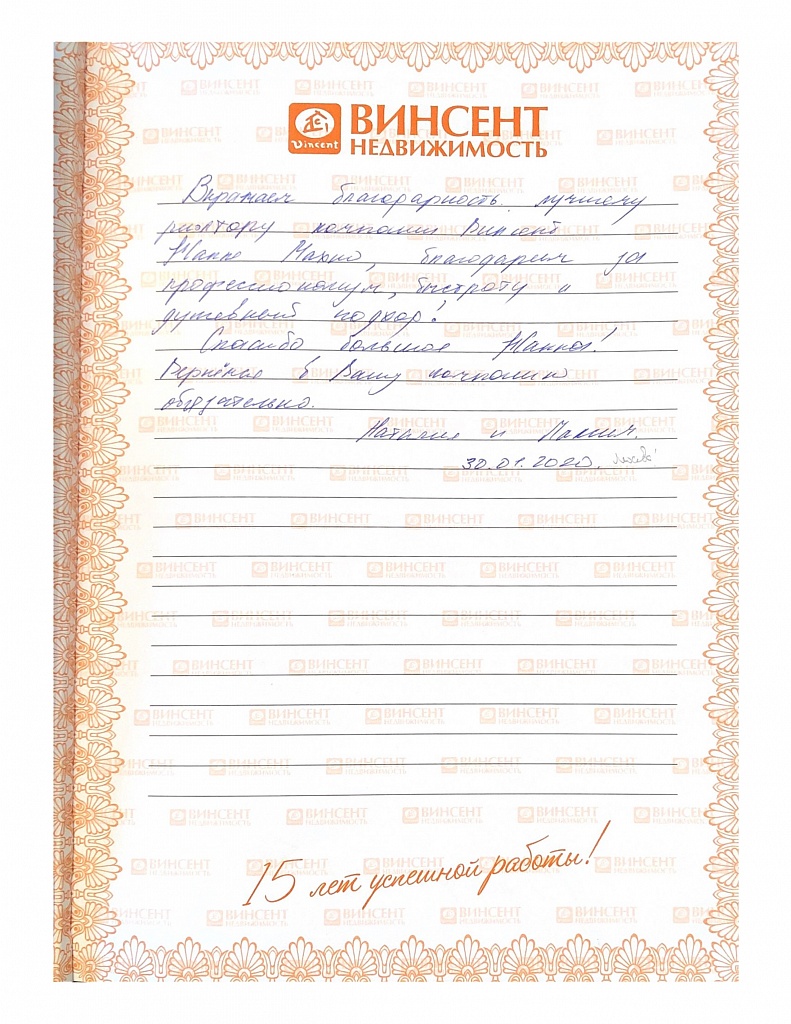 Vincent
ВИНСЕНТ
НЕДВИЖИМОСТЬ
Выражаем благодарность лучшему
риэлтору компании Винсент
Жанне Махно, благодарим за
профессионализм, быстроту и
душевный подход!
Спасибо большое Жанна!
Вернёмся в Вашу компанию
обязательно.
Наталия и Максим.
30.01.2020.
15 лет успешной работы!